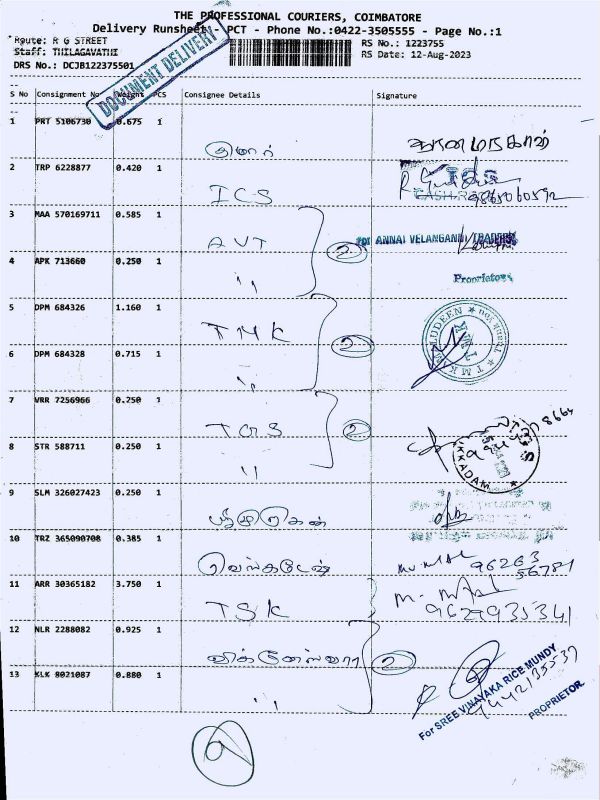 THE PROFESSIONAL COURIERS, COIMBATORE
Delivery Runsheet - PCT - Phone No.:0422-3505555 - Page No.:1
Route: R G STREET RS No.: 1223755
Staff: THILAGAVATHI RS Date: 12-Aug-2023
DRS No.: DCJB122375501
DOCUMENT DELIVERY
S No Consignment No Weight PCS Consignee Details Signature
1 PRT 5106730 0.675 1
குமார்
2 TRP 6228877 0.420 1
ICS 9865060592
3 MAA 570169711 0.585 1
AVT 2 For ANNAI VELANGANNI TRADERS
4 APK 713660 0.250 1
" Proprietor
5 DPM 684326 1.160 1
TMK 2
6 DPM 684328 0.715 1
"
7 VRR 7256966 0.250 1
TGS 2
8 STR 588711 0.250 1
"
9 SLM 326027423 0.250 1
10 TRZ 365090708 0.385 1
வெங்கடேஷ் 96263
56781
11 ARR 30365182 3.750 1
TSK 9629935341
12 NLR 2288082 0.925 1
விக்னேஸ்வரா 2
13 KLK 8021087 0.880 1
"
For SREE VINAYAKA RICE MUNDY
PROPRIETOR